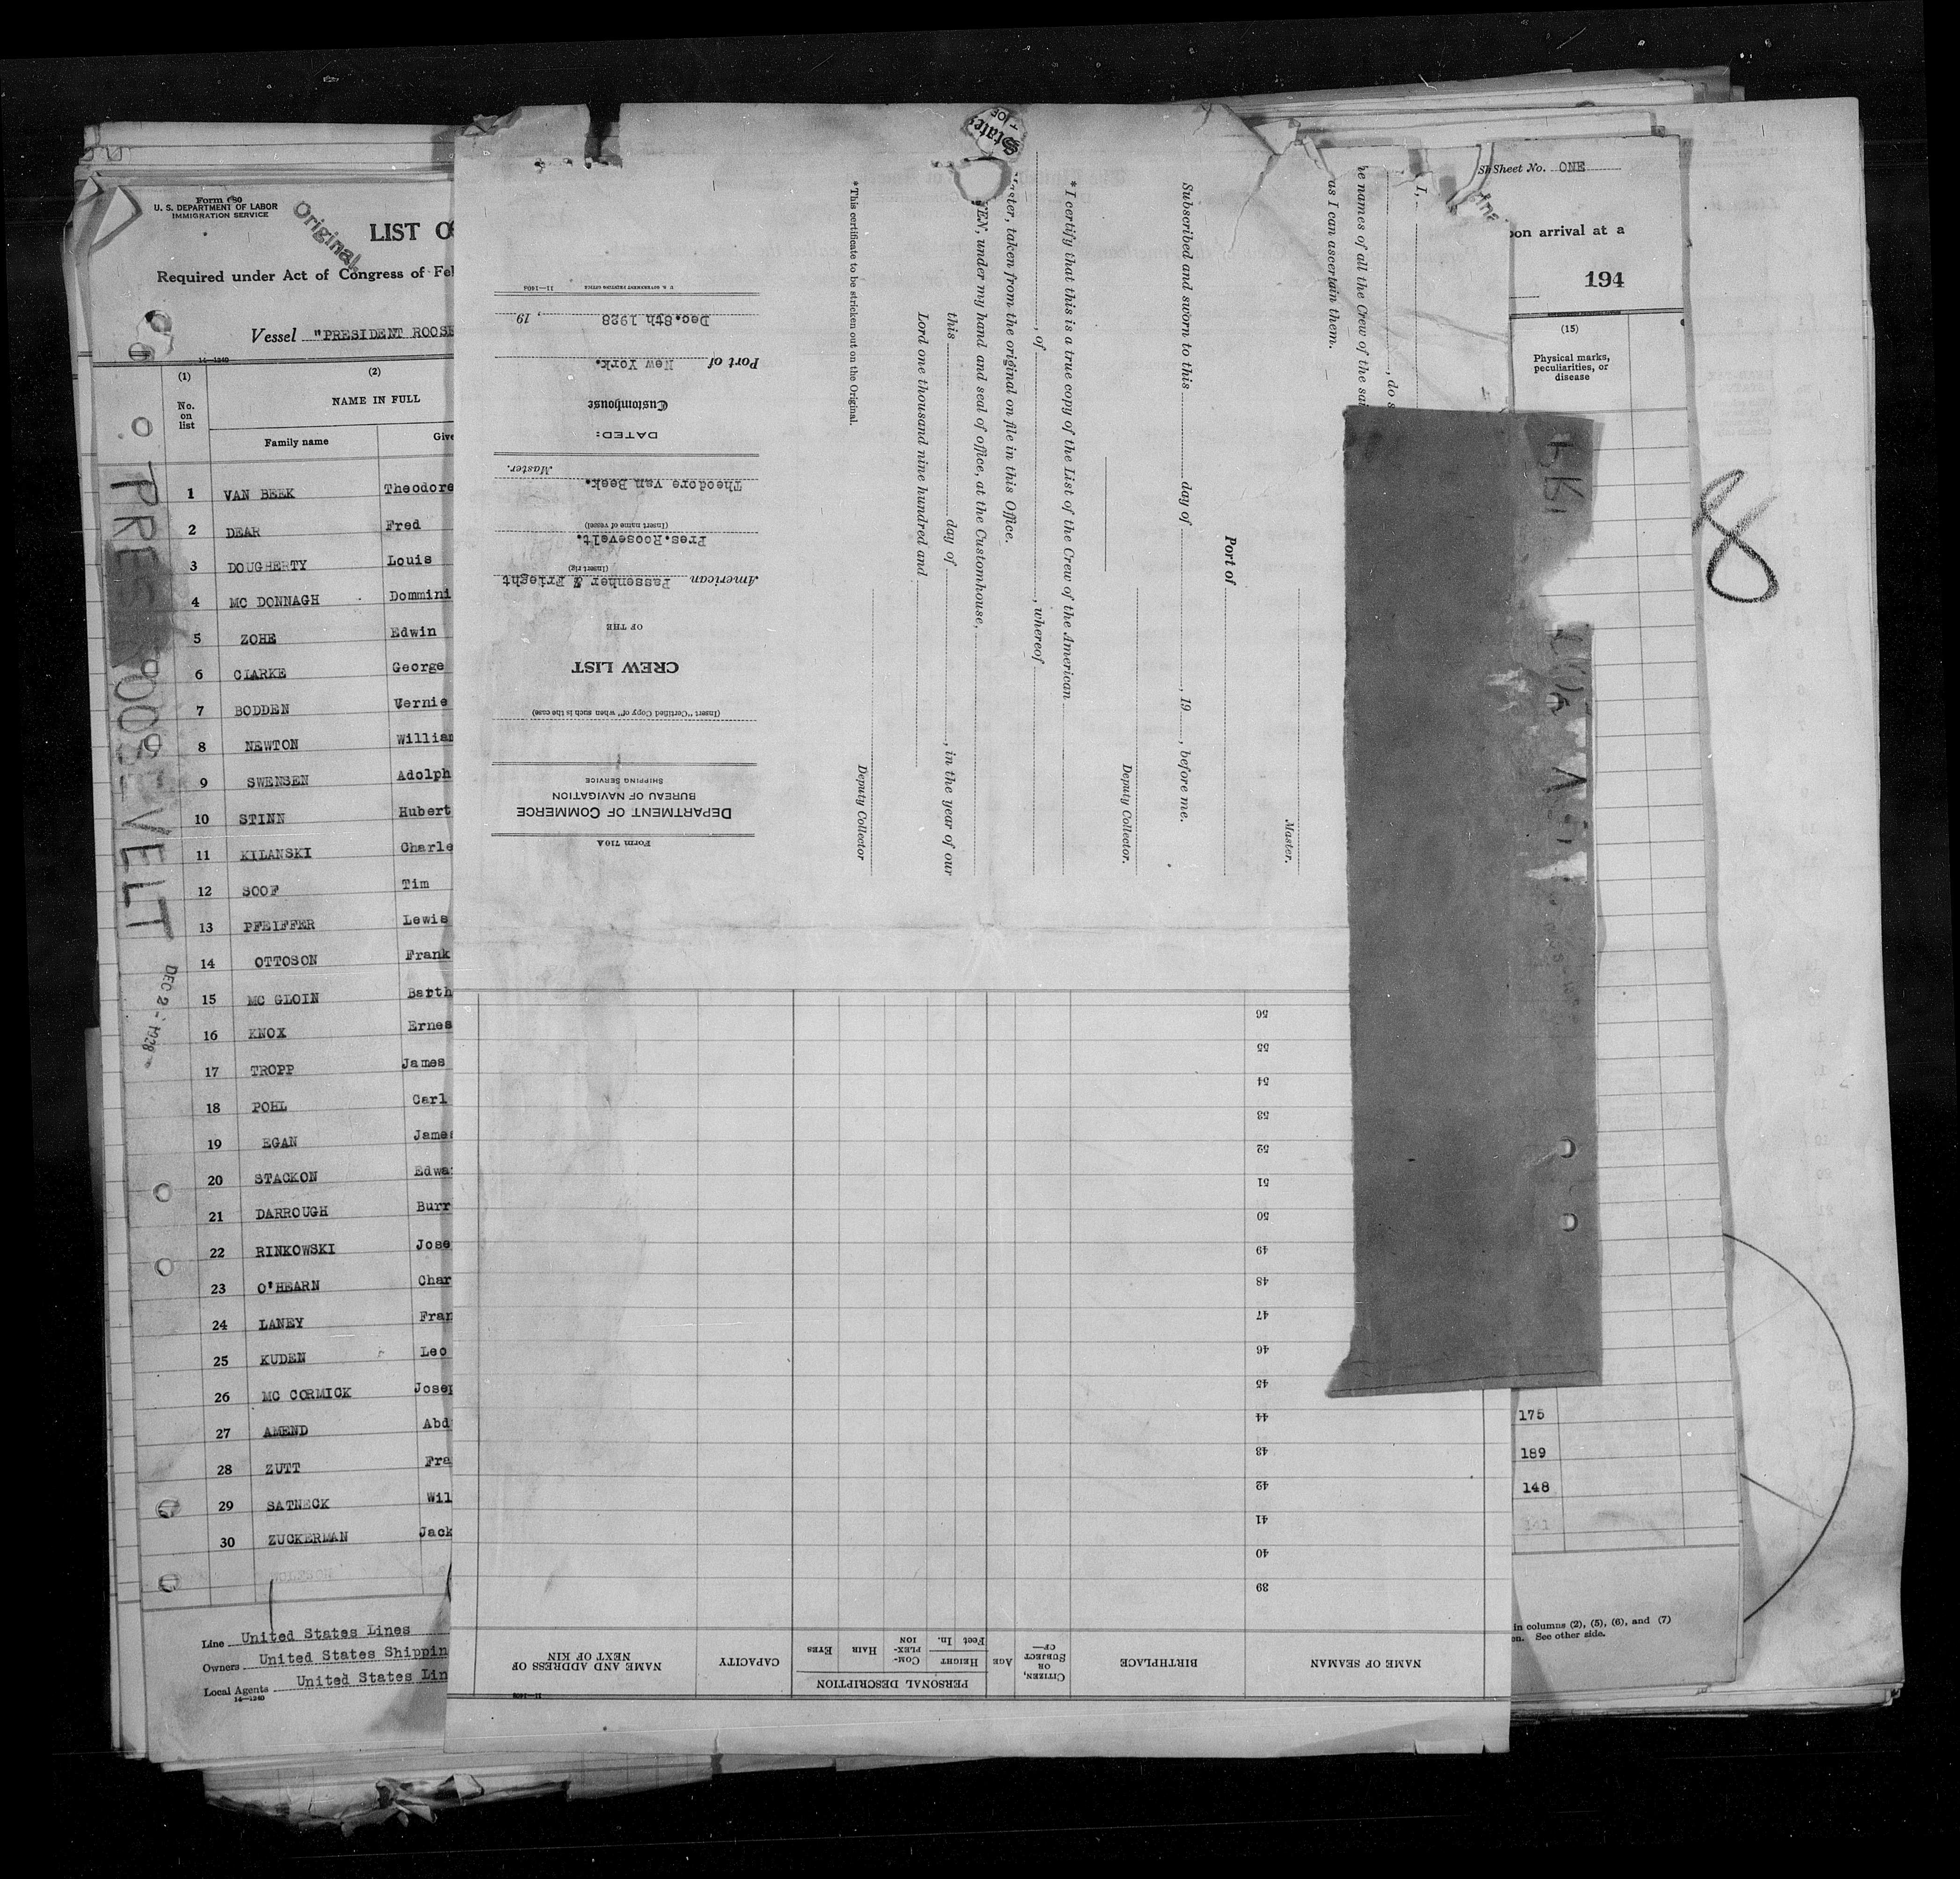 Form 680
U. S. DEPARTMENT OF LABOR
IMMIGRATION SERVICE
Original
LIST O
Required under Act of Congress of Fe
Vessel "PRESIDENT ROOSE
14—1240
(1)
No. on list
(2)
NAME IN FULL
Family name
Give
1 VAN BEEK Theodore
2 DEAR Fred
3 DOUGHERTY Louis
4 MC DONNAGH Dommini
5 ZOHE Edwin
6 CLARKE George
7 BODDEN Vernie
8 NEWTON William
9 SWENSEN Adolph
10 STINN Hubert
11 KILANSKI Charle
12 SOOF Tim
13 PFEIFFER Lewis
14 OTTOSON Frank
15 MC GLOIN Barth
16 KNOX Ernes
17 TROPP James
18 POHL Carl
19 EGAN James
20 STACKON Edwa
21 DARROUGH Burr
22 RINKOWSKI Jose
23 O'HEARN Char
24 LANEY Fran
25 KUDEN Leo
26 MC CORMICK Josep
27 AMEND Abd
28 ZUTT Fra
29 SATNECK Wil
30 ZUCKERMAN Jack
Line United States Lines
Owners United States Shippin
Local Agents United States Lin
14—1240
PRES ROOSEVELT
DEC 2 - 1928
Form 710A
DEPARTMENT OF COMMERCE
BUREAU OF NAVIGATION
SHIPPING SERVICE
(Insert "Certified Copy of" when such is the case)
CREW LIST
OF THE
American Passenher & Frieght
(Insert rig)
Pres.Roosevelt.
(Insert name of vessel)
Theodore van Beek.
Master.
DATED:
Customhouse
Port of New York.
Dec.8th 1928 , 19
U. S. GOVERNMENT PRINTING OFFICE 11—1404
I,
, do s
he names of all the Crew of the sai
as I can ascertain them.
Master.
Port of
Subscribed and sworn to this day of , 19 , before me.
Deputy Collector.
* I certify that this is a true copy of the List of the Crew of the American
, of , whereof
aster, taken from the original on file in this Office.
EN, under my hand and seal of office, at the Customhouse,
this day of , in the year of our
Lord one thousand nine hundred and
Deputy Collector
*This certificate to be stricken out on the Original.
States
NAME OF SEAMAN
BIRTHPLACE
CITIZEN, OR SUBJECT OF—
AGE
PERSONAL DESCRIPTION
HEIGHT
Feet In.
COM-PLEX-ION
HAIR
EYES
CAPACITY
NAME AND ADDRESS OF NEXT OF KIN
39
40
41
42
43
44
45
46
47
48
49
50
51
52
53
54
55
56
Sheet No. ONE
pon arrival at a
194
(15)
Physical marks, peculiarities, or disease
175
189
148
141
in columns (2), (5), (6), and (7)
en. See other side.
8